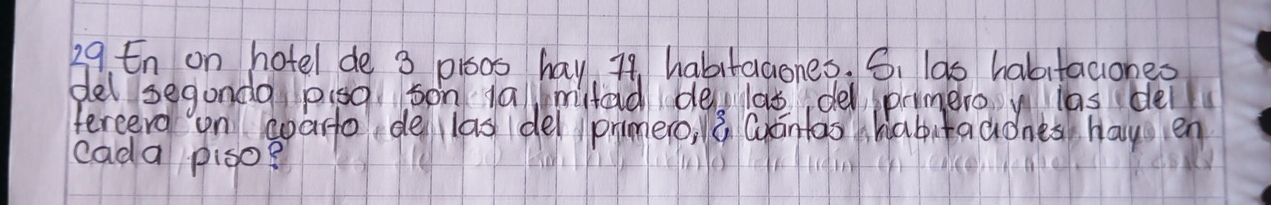 29 En on hotel de 3 pisos hay 77 habitaciones. Si las habitaciones
del segundo piso son la mitad de las del primero y las del
tercero un coarto de las del primero, ¿ Cuántas habitaciones hay en
cada piso?